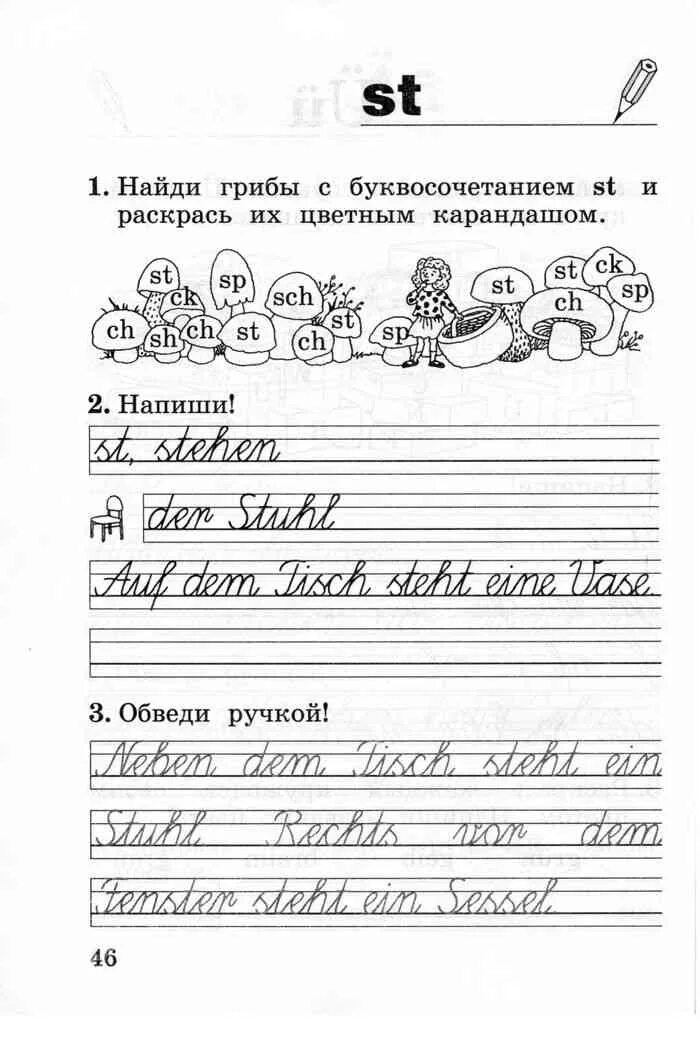 st
1. Найди грибы с буквосочетанием st и
раскрась их цветным карандашом.
st sp sch st ck
ck st st ch sp
ch sh ch st ch sp
2. Напиши!
st, stehen
der Stuhl
Auf dem Tisch steht eine Vase.
3. Обведи ручкой!
Neben dem Tisch steht ein
Stuhl. Rechts vor dem
Fenster steht ein Sessel.
46